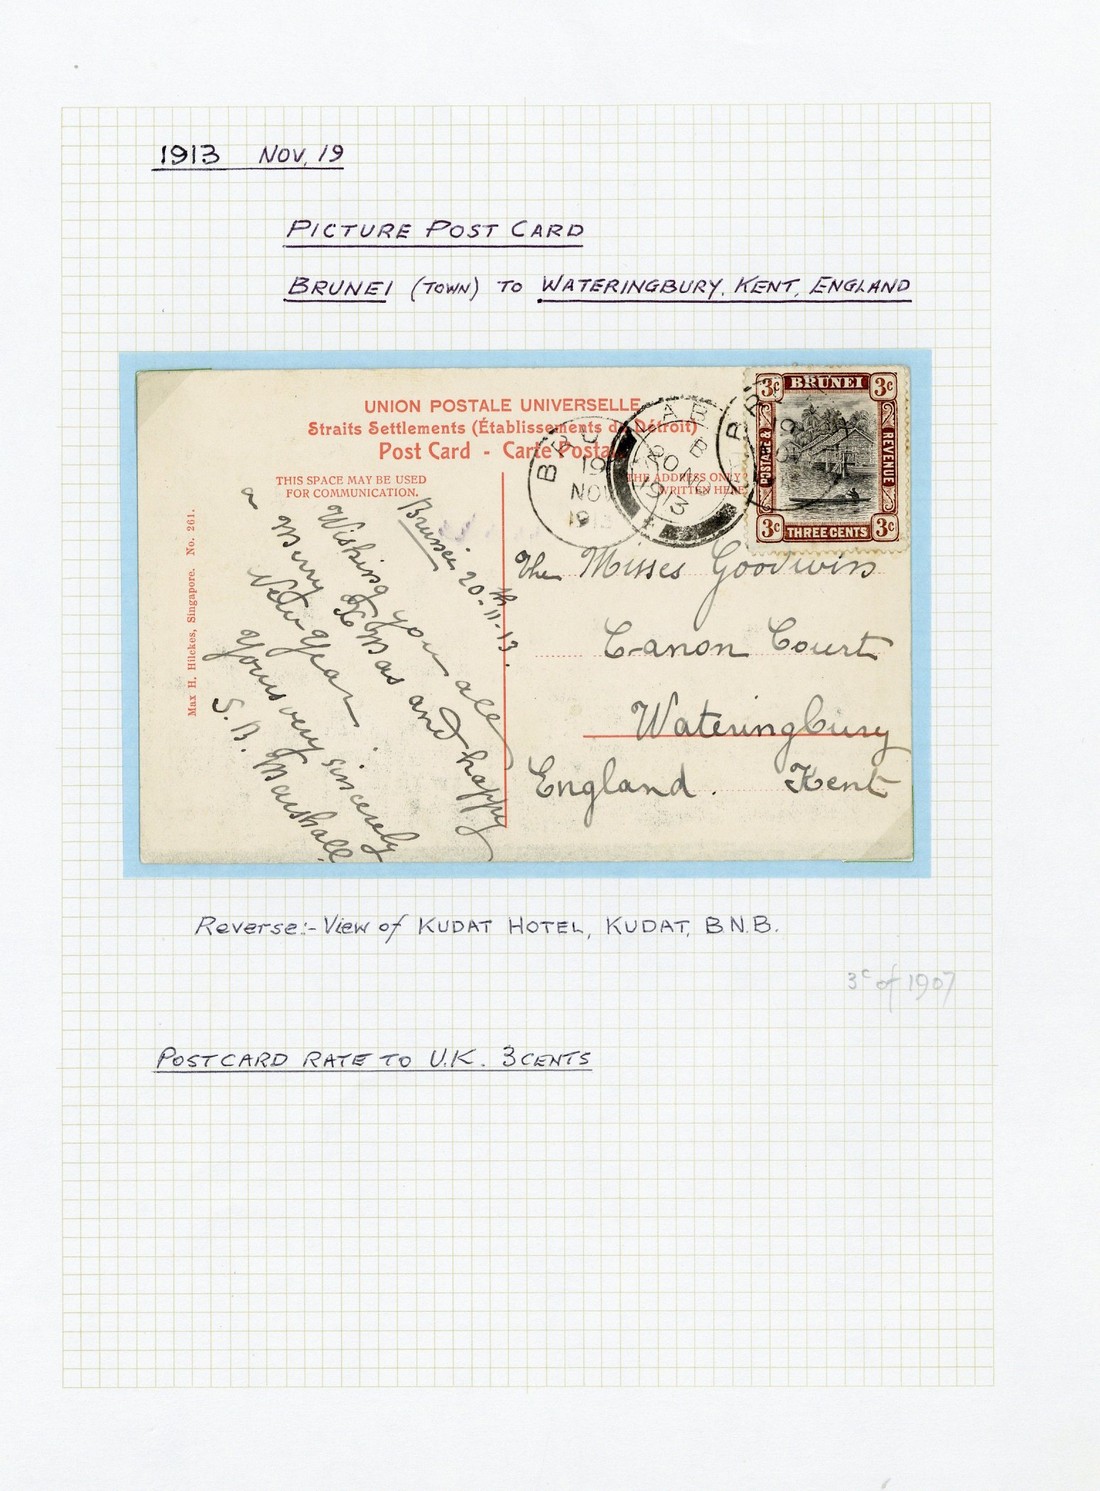 1913 Nov, 19
PICTURE POST CARD
BRUNEI (TOWN) TO WATERINGBURY, KENT, ENGLAND
UNION POSTALE UNIVERSELLE.
Straits Settlements (Établissements du Détroit)
Post Card - Carte Posta
THIS SPACE MAY BE USED
FOR COMMUNICATION.
THE ADDRESS ONLY
WRITTEN HERE
Max H. Hilckes, Singapore. No. 261.
Brunei 20th-11-13.
Wishing you all
a Merry XMas and happy
New Year.
Yours very sincerely
S. B. Marshall.
BRU
19
NOV
1913
20 NO
1913
BRUNEI
3c
3c
POSTAGE &
REVENUE
3c
THREE CENTS
3c
The Misses Goodwin
Canon Court
Wateringbury
England. Kent
Reverse:- View of KUDAT HOTEL, KUDAT, B.N.B.
3c of 1907
POSTCARD RATE TO U.K. 3 CENTS